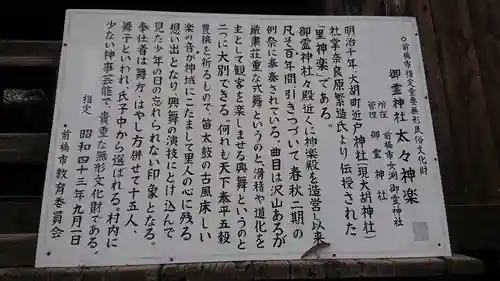 ○前橋市指定重要無形民俗文化財
御霊神社 太々神楽
所在 前橋市女渕御霊神社
管理 御霊神社
明治十年、大胡町近戸神社(現大胡神社)
社掌奈良原繁造氏より伝授された
「里神楽」である。
御霊神社々殿近くに神楽殿を造営し以来
凡そ百年間引きつづいて、春秋二期の
例祭に奉奏されている。曲目は沢山あるが
厳粛荘重な式舞というのと、滑稽や道化を
主として観客を楽しませる興舞というのと
二つに大別できる。何れも天下泰平五穀
豊穣を祈るもので、笛太鼓の古風床しい
楽の音が神域にこだまして里人の心に残る
想い出となり、興舞の演技にとけ込んで
見た少年の日の忘れられない印象となる。
奉仕者は舞方・はやし方併せて十五人、
舞子といわれ氏子中から選ばれる。村内に
少ない神事芸能で、貴重な無形文化財である。
指定 昭和四十三年九月一日
前橋市教育委員会